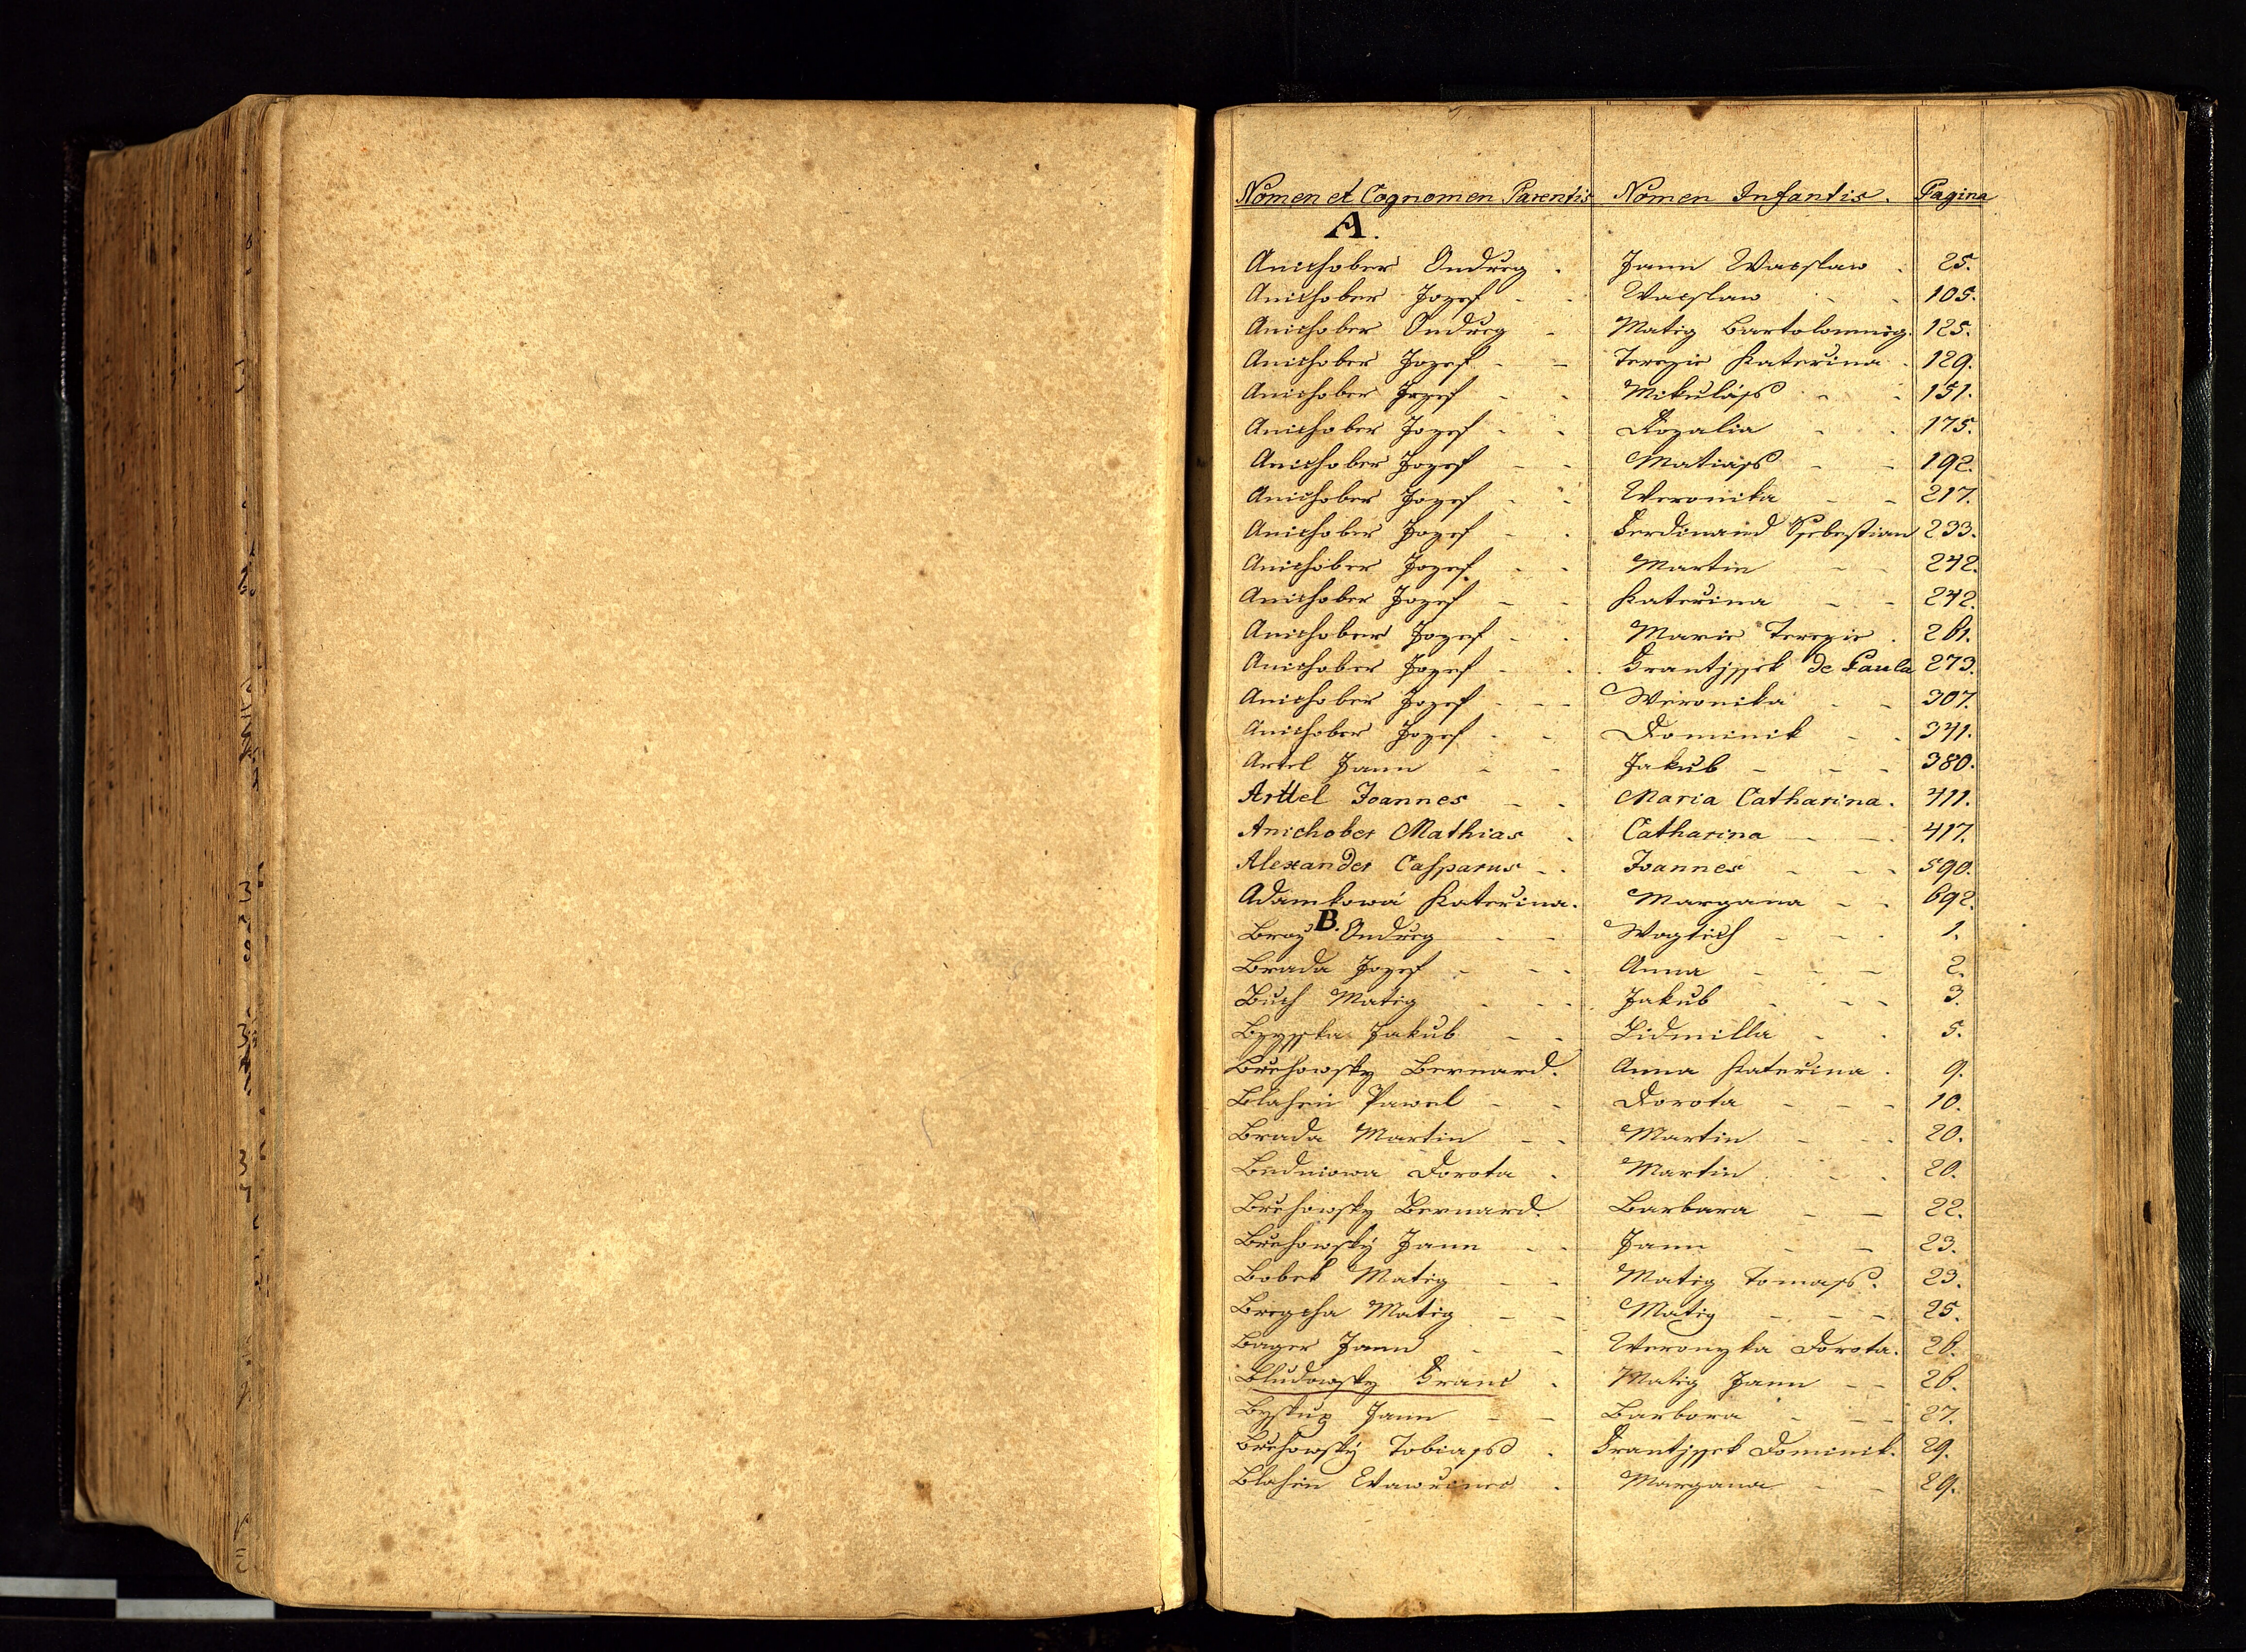 Nomen et Cognomen Parentis Nomen Infantis. Pagina
A.
Anichober Ondreg. Jann Wacslaw. 25.
Anichober Jozef - - Wacslaw - - 105.
Anichober Ondreg - Mateg Bartolomueg. 125.
Anichober Jozef - - Terezie Kateřina. 129.
Anichober Jozef - - Mikulass - - 151.
Anichober Jozef - - Rozalia - - 175.
Anichober Jozef - - Matiass - - 192.
Anichober Jozef - - Weronika - - 217.
Anichober Jozef - - Ferdinand Ssebestian 233.
Anichober Jozef - - Martin - - 242.
Anichober Jozef - - Kateřina - - 242.
Anichober Jozef - - Marie Terezie. 261.
Anichober Jozef - - Frantissek de Paula 273.
Anichober Jozef - - Weronika - - 307.
Anichober Jozef - - Dominik - - 341.
Artel Jann - - Jakub - - - 380.
Arttel Joannes - - Maria Catharina. 411.
Anichober Mathias - Catharina - - 417.
Alexander Casparus - - Joannes - - - 590.
Adamkowá Kateřina. Margana - - 692.
B.
Braz Ondreg - - Wogtěch - - - 1.
Brada Jozef - - - Anna - - - 2.
Buch Matěg - - - Jakub - - - 3.
Jakub - - Lidmilla - - 5.
Břehowsky Bernard. Anna Kateřina. 9.
Blahen Pawel - - Dorota - - - 10.
Brada Martin - - Martin - - - 20.
Bedniowa Dorota. Martin - - 20.
Břehowsky Bernard. Barbara - - 22.
Břehowský Jann - - Jann - - 23.
Bobek Matěg - - Matěg Tomass. 23.
Bregcha Matěg - - Matěg - - - 25.
Bager Jann - - Weronyka Dorota. 26.
Bludowsky Franc. Matěg Jann - - 26.
Byskup Jann - - Barbora - - - 27.
Břehowský Tobiass. Frantissek Dominik. 29.
Blahen Wawřinec. Margana - - 29.